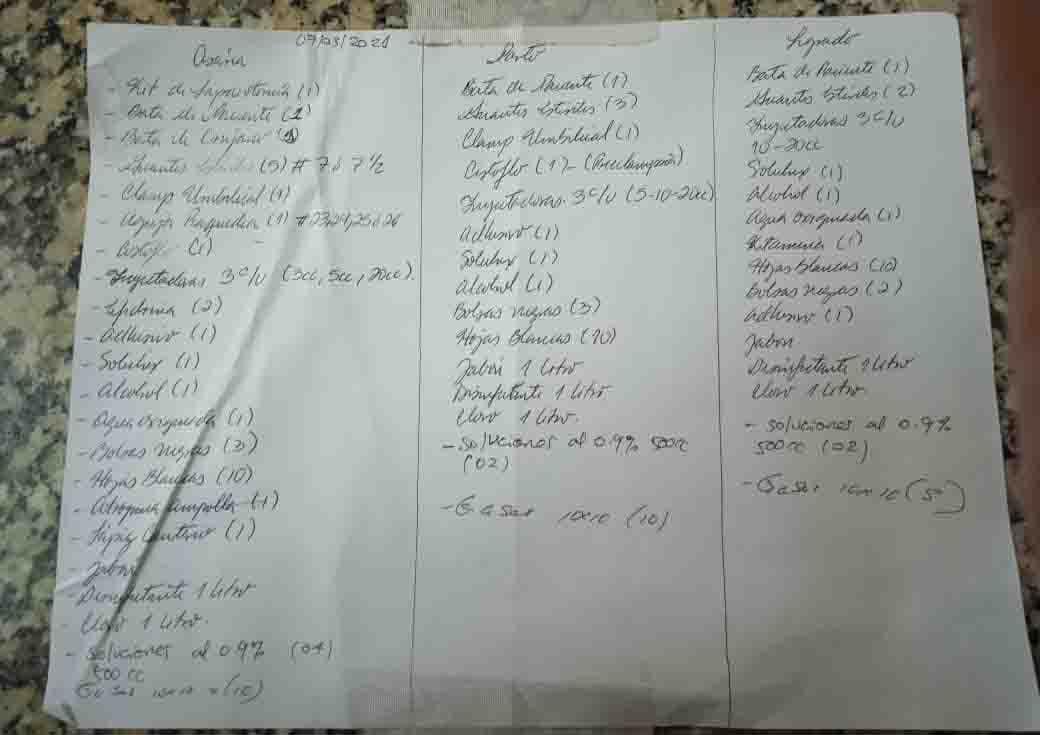 07/03/2021
Cesárea
- Kit de Laparotomia (1)
- Bata de Paciente (1)
- Bata de Cirujano
- Guantes Estériles (5) # 7 ó 7 1/2
- Clamp Umbilical (1)
- Aguja Raquidea (1) # 23,24,25,ó 26
- Cistoflo (1)
- Inyectadoras 3 c/u (3cc, 5cc, 20cc).
- Lipidocaina (2)
- Adhesivo (1)
- Solulux (1)
- Alcohol (1)
- Agua oxigenada (1)
- Bolsas negras (3)
- Hojas Blancas (10)
- Atropina ampolla (1)
- (1)
- Jabon
- Desinfetante 1 Litro
- Cloro 1 Litro.
- Soluciones al 0.9% (04)
500 cc
Gasas 10x10 (10)
Parto
Bata de Paciente (1)
Guantes Estériles (3)
Clamp Umbilical (1)
Cistoflo (1) - (Preclampsia)
Inyectadoras 3 c/u (5-10-20cc)
Adhesivo (1)
Solulux (1)
Alcohol (1)
Bolsas negras (3)
Hojas Blancas (10)
Jabon 1 Litro
Desinfetante 1 Litro
Cloro 1 Litro.
- Soluciones al 0.9% 500cc
(02)
- Gasas 10x10 (10)
Legrado
Bata de Paciente (1)
Guantes Esteriles (2)
Inyectadoras 3 c/u
10-20cc
Solulux (1)
Alcohol (1)
Agua oxigenada (1)
Ketamina (1)
Hojas blancas (10)
Bolsas negras (2)
Adhesivo (1)
Jabon
Desinfetante 1 Litro
Cloro 1 Litro.
- Soluciones al 0.9%
500 cc (02)
- Gasas 10x10 (5)